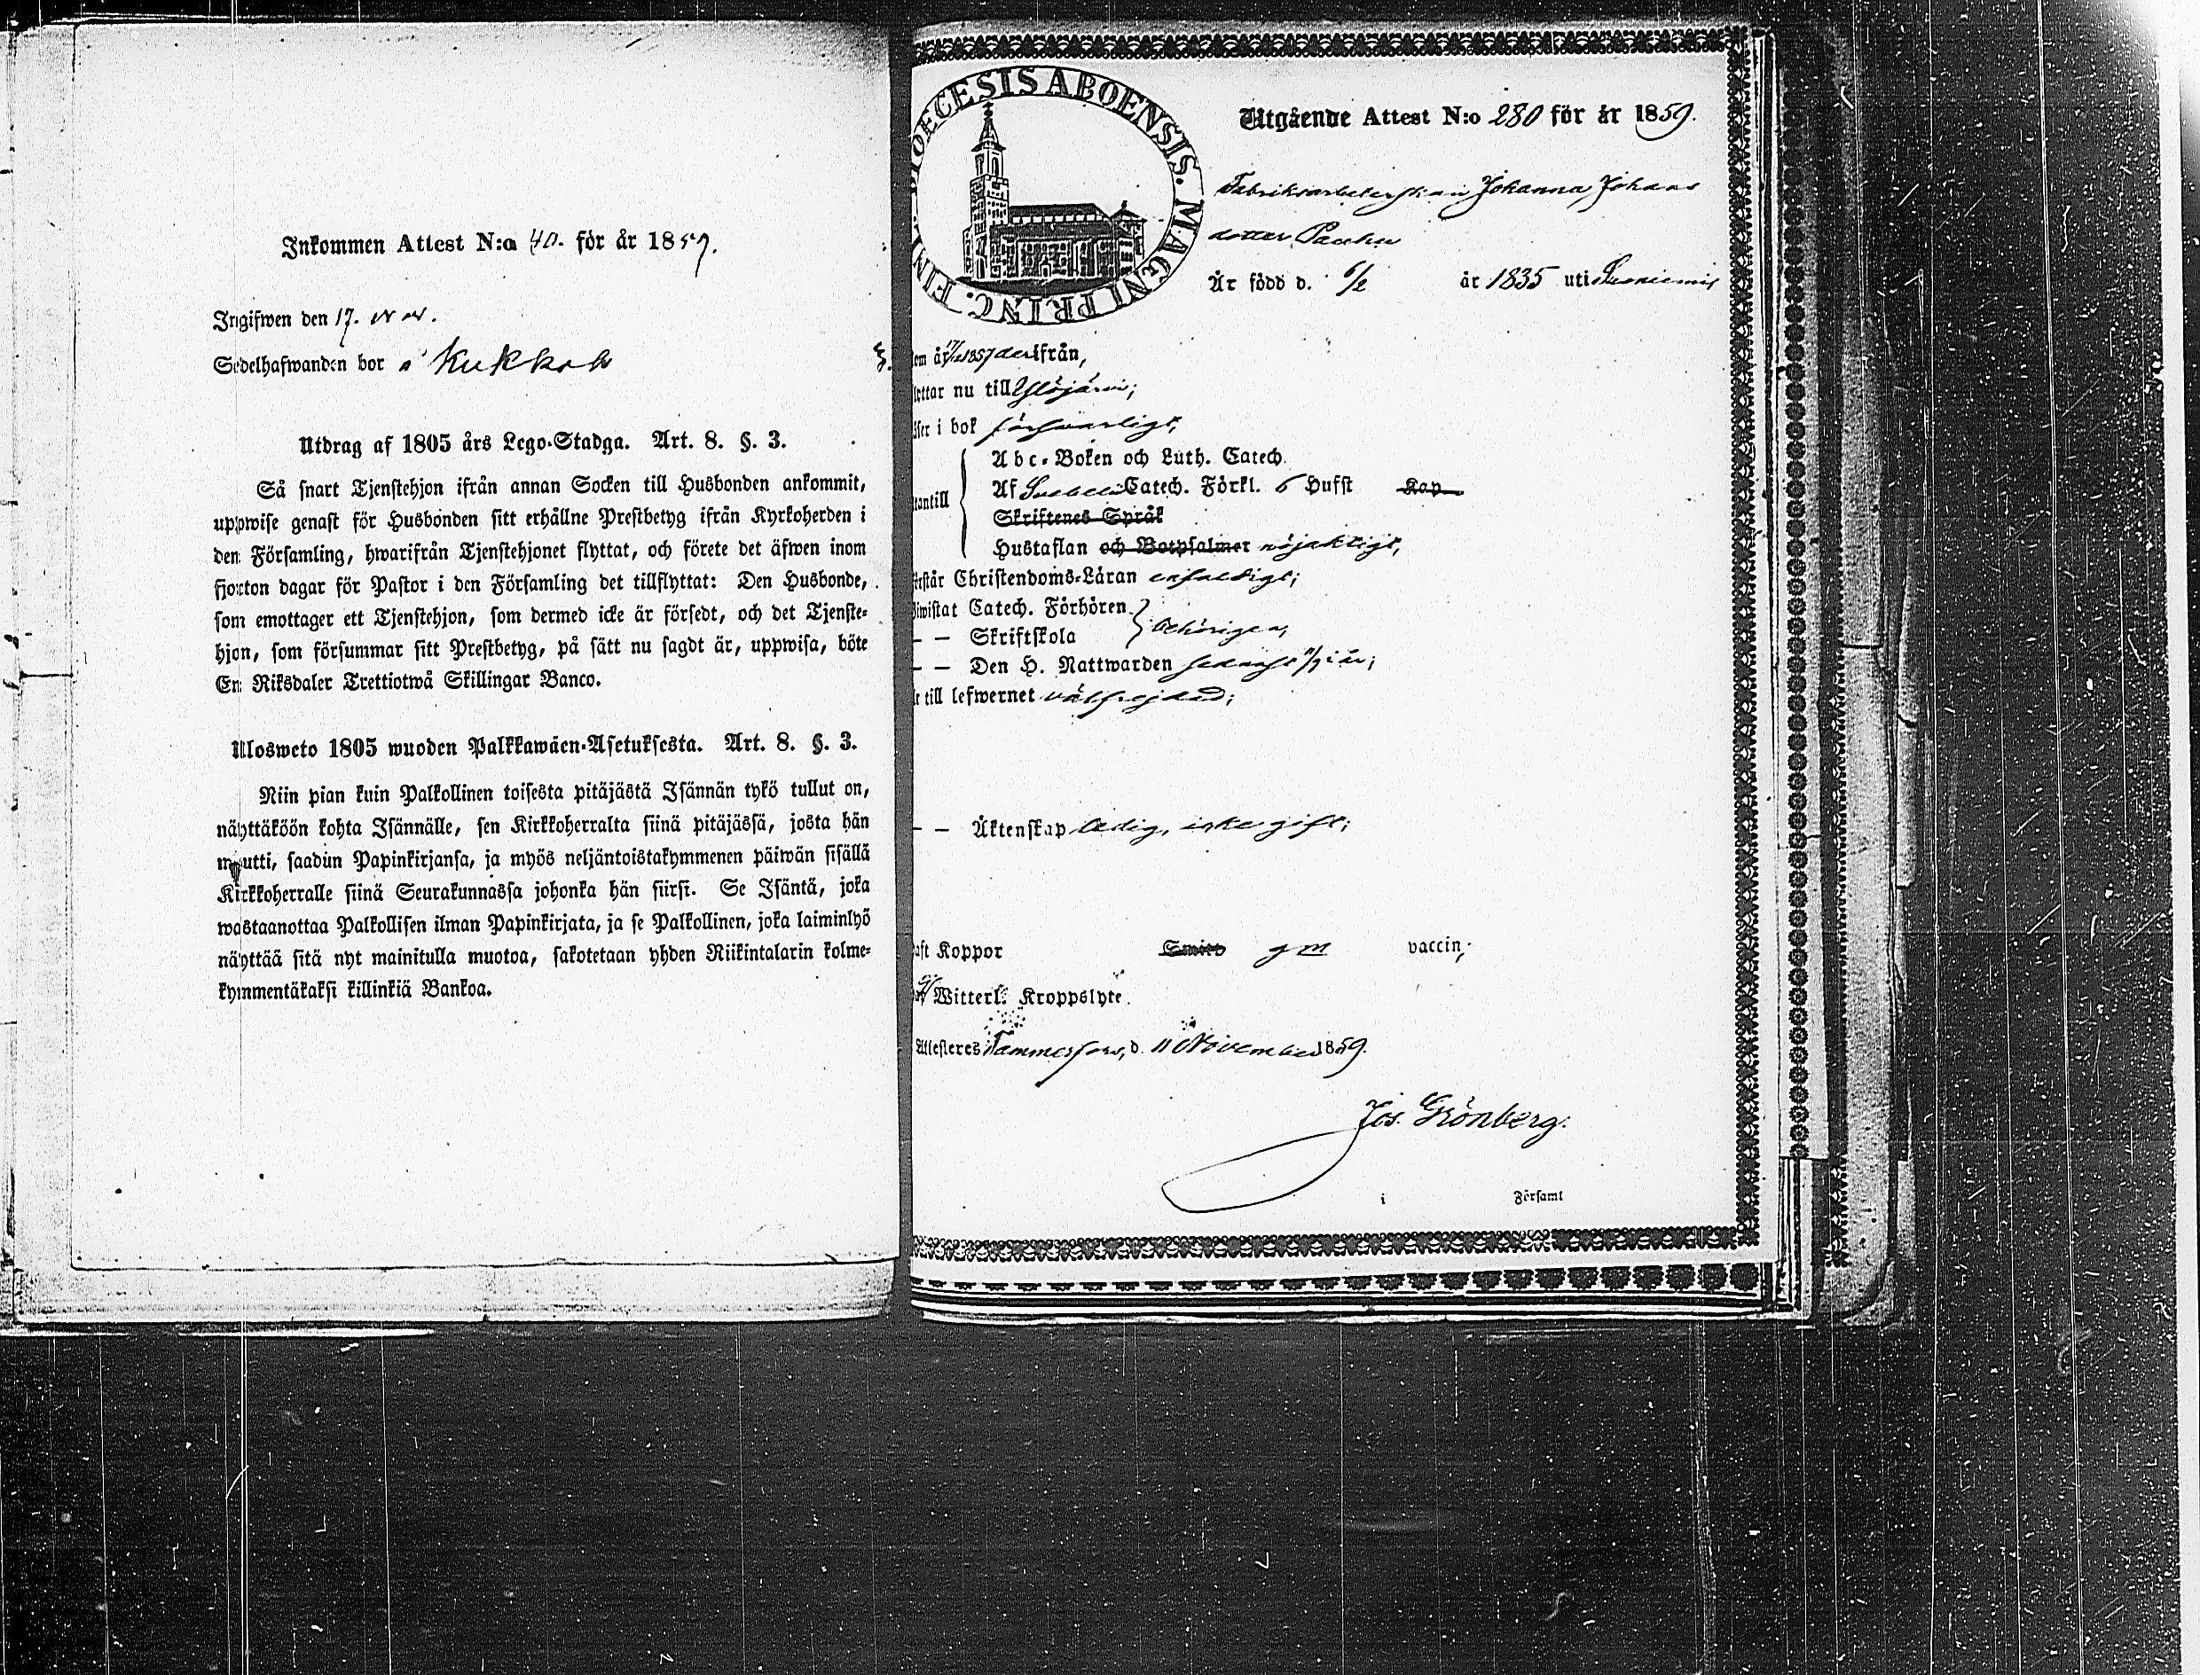 Inkommen Attest N:o 40. för år 1859.
Ingifwen den 17. Nov.
Sedelhafwanden bor å Kukkola
Utdrag af 1805 års Lego-Stadga. Art. 8. §. 3.
Så snart Tjenstehjon ifrån annan Socken till Husbonden ankommit,
uppwise genast för Husbonden sitt erhållne Prestbetyg ifrån Kyrkoherden i
den Församling, hwarifrån Tjenstehjonet flyttat, och förete det äfwen inom
fjorton dagar för Pastor i den Församling det tillflyttat: Den Husbonde,
som emottager ett Tjenstehjon, som dermed icke är försedt, och det Tjenste-
hjon, som försummar sitt Prestbetyg, på sätt nu sagdt är, uppwisa, böte
En Riksdaler Trettiotwå Skillingar Banco.
Ulosweto 1805 wuoden Palkkawäen-Asetuksesta. Art. 8. §. 3.
Niin pian kuin Palkollinen toisesta pitäjästä Isännän tykö tullut on,
näyttäköön kohta Isännälle, sen Kirkkoherralta siinä pitäjässä, josta hän
muutti, saadun Papinkirjansa, ja myös neljäntoistakymmenen päiwän sisällä
Kirkkoherralle siinä Seurakunnassa johonka hän siirsi. Se Isäntä, joka
wastaanottaa Palkollisen ilman Papinkirjata, ja se Palkollinen, joka laiminlyö
näyttää sitä nyt mainitulla muotoa, sakotetaan yhden Riikintalarin kolme-
kymmentäkaksi killinkiä Bankoa.
DIOECESIS ABOENSIS. MAGNI PRINC. FINL.
Utgående Attest N:o 280 för år 1859.
Fabriksarbeterskan Johanna Johans
dotter
Är född d. 6/2 år 1835 uti
em år 1857 derifrån,
lyttar nu till Ylöjärvi;
äser i bok försvarligt,
Abc-Boken och Luth. Catech.
Af Svebelii Catech. Förkl. 6 Hufst Kap
utantill
Skriftenes Språk
Hustaflan och Botpsalmer nöjaktigt,
rstår Christendoms-Läran enfaldigt;
iwistat Catech. Förhören
— — Skriftskola behörigen,
— — Den H. Nattwarden sedanst
till lefwernet välfrejdad;
— — Äktenskap ledig, icke gift;
aft Koppor Smitto g m vaccin;
Witterl. Kroppslyte.
Attesteres Tammerfors, d. 11 November 1859.
Jos. Grönberg.
i Församl